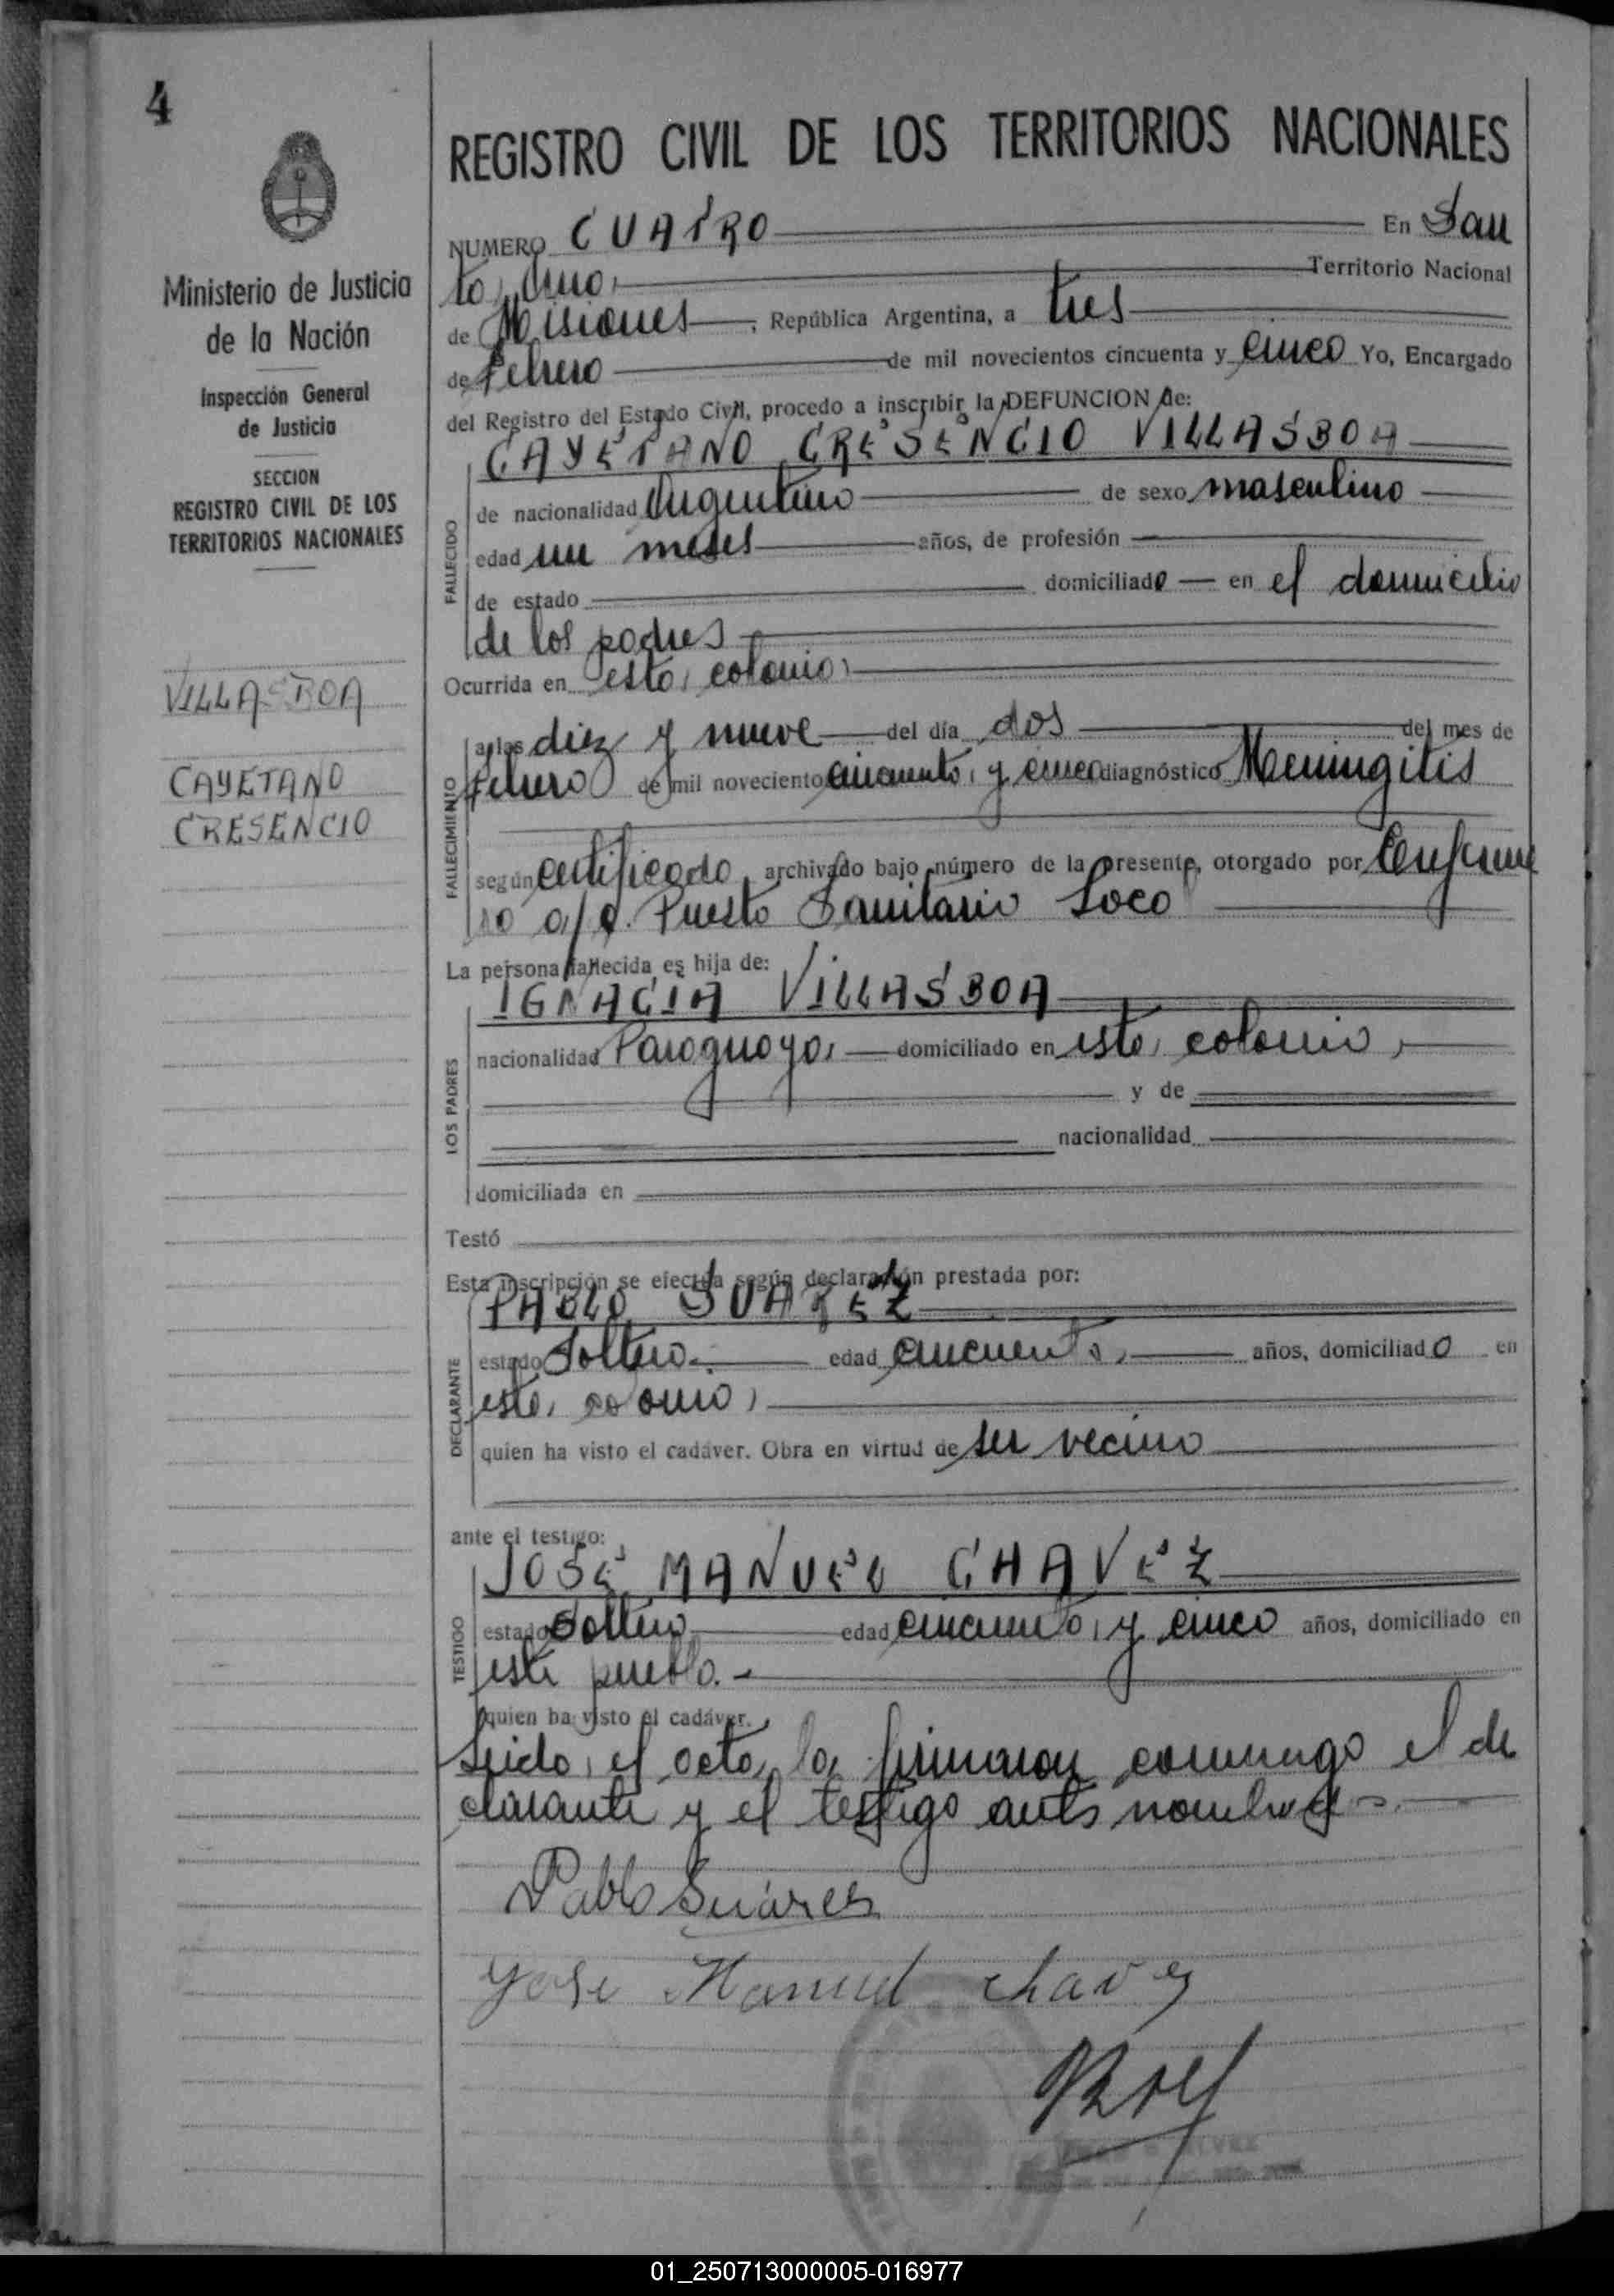 4
REGISTRO CIVIL DE LOS TERRITORIOS NACIONALES
Ministerio de Justicia
de la Nación
Inspección General
de Justicia
SECCION
REGISTRO CIVIL DE LOS
TERRITORIOS NACIONALES
VILLASBOA
CAYETANO
CRESENCIO
NUMERO CUATRO En San
ta Ana Territorio Nacional
de Misiones, República Argentina, a tres
de Febrero de mil novecientos cincuenta y cinco Yo, Encargado
del Registro del Estado Civil, procedo a inscribir la DEFUNCION de:
CAYETANO CRESENCIO VILLASBOA
FALLECIDO
de nacionalidad Argentino de sexo masculino
edad un meses años, de profesión
de estado domiciliado en el domicilio
de los padres
Ocurrida en esta colonia
FALLECIMIENTO
a las diez y nueve del día dos del mes de
Febrero de mil novecientos cincuenta y cinco diagnóstico Meningitis
según certificado archivado bajo número de la presente, otorgado por Enferme
ro a/c. Puesto Sanitario Loco
La persona fallecida es hija de:
IGNACIA VILLASBOA
LOS PADRES
nacionalidad Paraguaya domiciliado en esta colonia
y de
nacionalidad
domiciliada en
Testó
Esta inscripción se efectúa según declaración prestada por:
PABLO SUAREZ
DECLARANTE
estado Soltero edad cincuenta años, domiciliado en
esta colonia
quien ha visto el cadáver. Obra en virtud de ser vecino
ante el testigo:
JOSE MANUEL CHAVEZ
TESTIGO
estado Soltero edad cincuenta y cinco años, domiciliado en
este pueblo.-
quien ha visto el cadáver.
Leida el acta la firmaron conmigo el de
clarante y el testigo antes nombrad
Pablo Suárez
Jose Manuel chavez
01_250713000005-016977